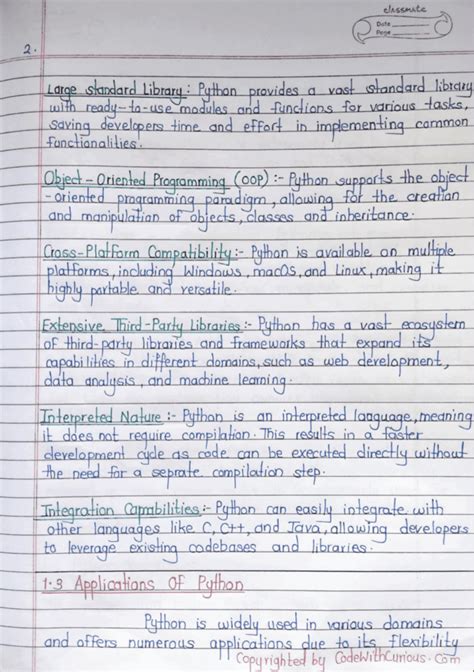 classmate
Date
Page
2.
Large standard Library : Python provides a vast standard library
with ready-to-use modules and functions for various tasks,
saving developers time and effort in implementing common
functionalities.
Object-Oriented Programming (OOP) :- Python supports the object
-oriented programming paradigm, allowing for the creation
and manipulation of objects, classes and inheritance.
Cross-Platform Compatibility :- Python is available on multiple
platforms, including Windows, macOs, and Linux, making it
highly portable and versatile.
Extensive Third-Party Libraries :- Python has a vast ecosystem
of third-party libraries and frameworks that expand its
capabilities in different domains, such as web development,
data analysis, and machine learning.
Interpreted Nature :- Python is an interpreted language, meaning
it does not require compilation. This results in a faster
development cycle as code can be executed directly without
the need for a seprate compilation step.
Integration Capabilities :- Python can easily integrate with
other languages like C, C++, and Java, allowing developers
to leverage existing codebases and libraries.
1.3 Applications Of Python
Python is widely used in various domains
and offers numerous applications due to its flexibility
Copyrighted by CodeWithCurious.com